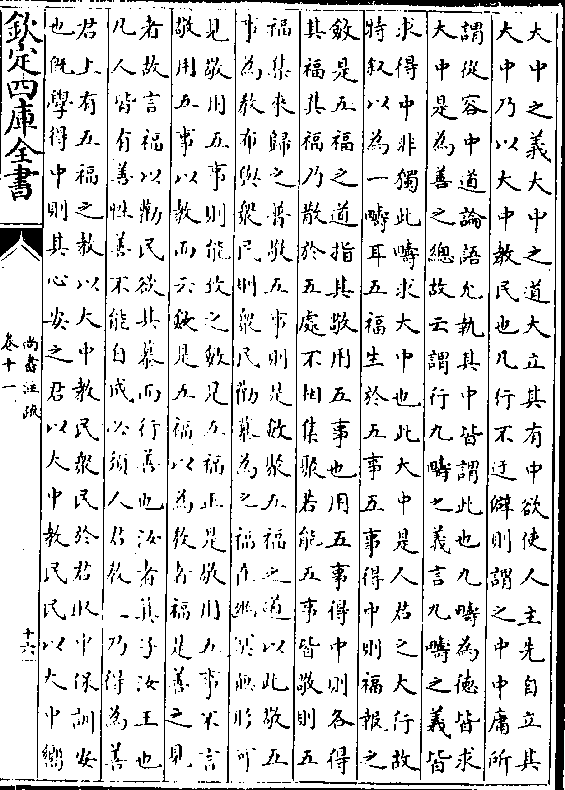 大中之義大中之道大立其有中欲使人主先自立其
大中乃以大中教民也凡行不迂僻則謂之中中庸所
謂從容中道論語允執其中皆謂此也九疇為德皆求
大中是為善之總故云謂行九疇之義言九疇之義皆
求得中非獨此疇求大中也此大中是人君之大行故
特叙以為一疇耳五福生於五事五事得中則福報之
斂是五福之道指其敬用五事也用五事得中則各得
其福其福乃散於五處不相集聚若能五事皆敬則五
福集來歸之普敬五事則是斂聚五福之道以此敬五
事為教布與衆民則衆民勸慕為之福在幽冥無形可
見敬用五事則能致之斂是五福正是敬用五事不言
敬用五事以教而云斂是五福以為教者福是善之見
者故言福以勸民欲其慕而行善也汝者箕子汝王也
凡人皆有善性善不能自成必須人君教之乃得為善
君上有五福之教以大中教民衆民於君取中保訓安
也既學得中則其心安之君以大中教民民以大中嚮
欽定四庫全書
尚書注疏
卷十一
十六